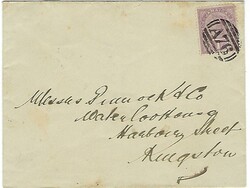 A76
Messrs Pinnock & Co
Water Loo House
Harbour Street
Kingston